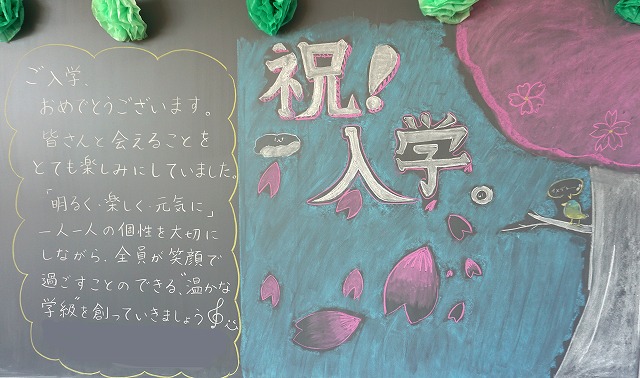 ご入学、
おめでとうございます。
皆さんと会えることを
とても楽しみにしていました。
「明るく・楽しく・元気に」
一人一人の個性を大切に
しながら、全員が笑顔で
過ごすことのできる、"温かな
学級"を創っていきましょう
祝!
入学。